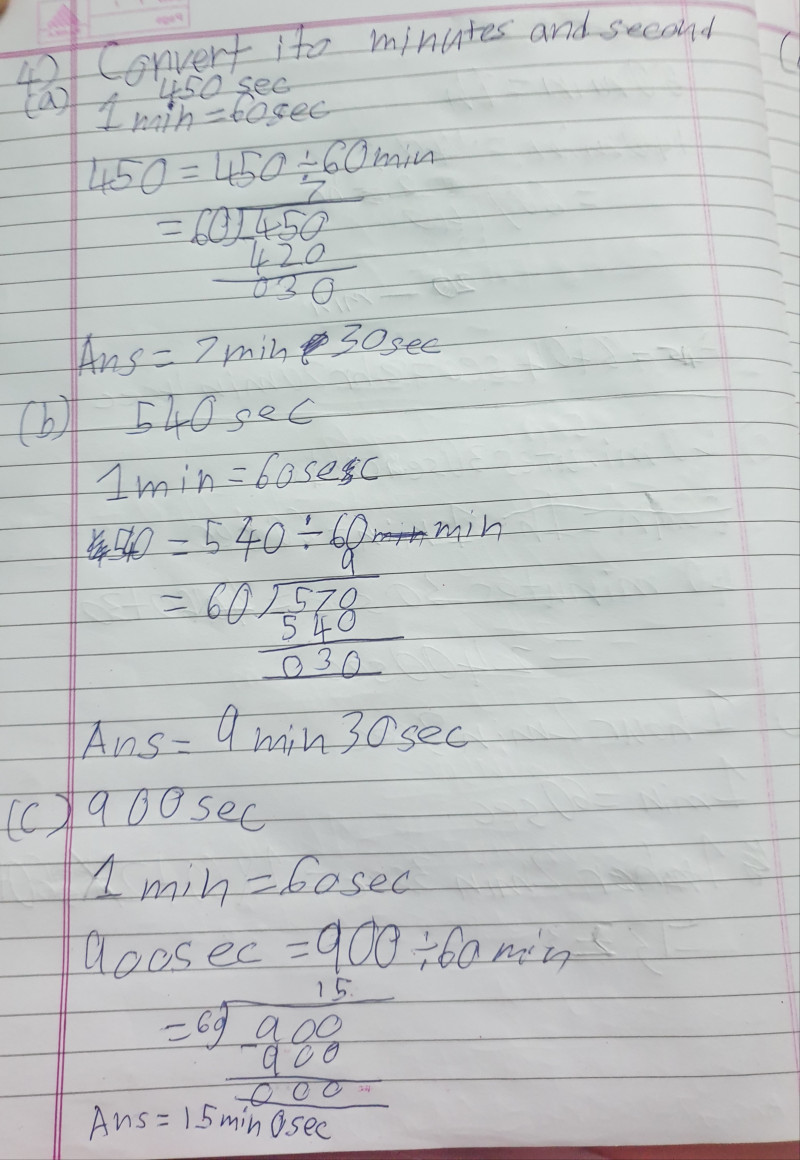 4) Convert ito minutes and second
(a) 450 sec
1 min = 60sec
450 = 450 ÷ 60 min
7
= 60)450
420
030
Ans = 7 min 30sec
(b) 540 sec
1 min = 60sec
540 = 540 ÷ 60 min
9
= 60)570
540
030
Ans = 9 min 30sec
(c) 900sec
1 min = 60sec
900sec = 900 ÷ 60 min
15
= 60)900
-900
000
Ans = 15min 0sec